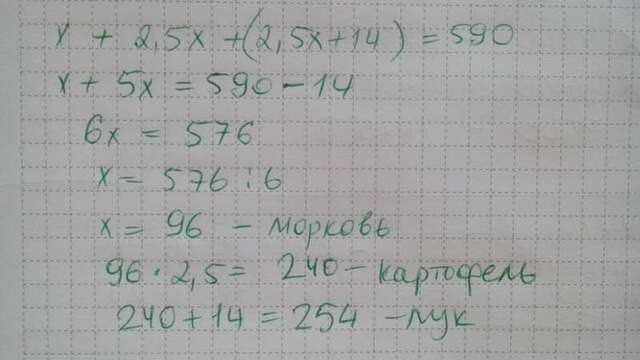 x + 2,5x + (2,5x+14) = 590
x + 5x = 590 - 14
6x = 576
x = 576 : 6
x = 96 - морковь
96 · 2,5 = 240 - картофель
240 + 14 = 254 - лук